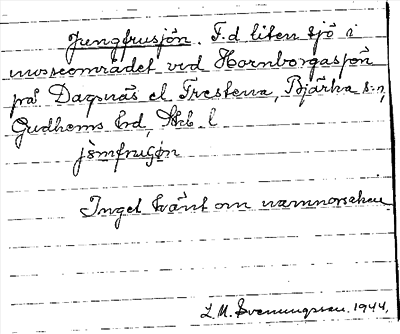 Jungfrusjön. F.d liten sjö i
mosseområdet vid Hornborgasjön
på Dagsnäs el. Trestena, Bjärka s:n,
Gudhems hd, Skb. l
jömfrusjön
Inget känt om namnorsaken
L.M. Svenungsson. 1944.